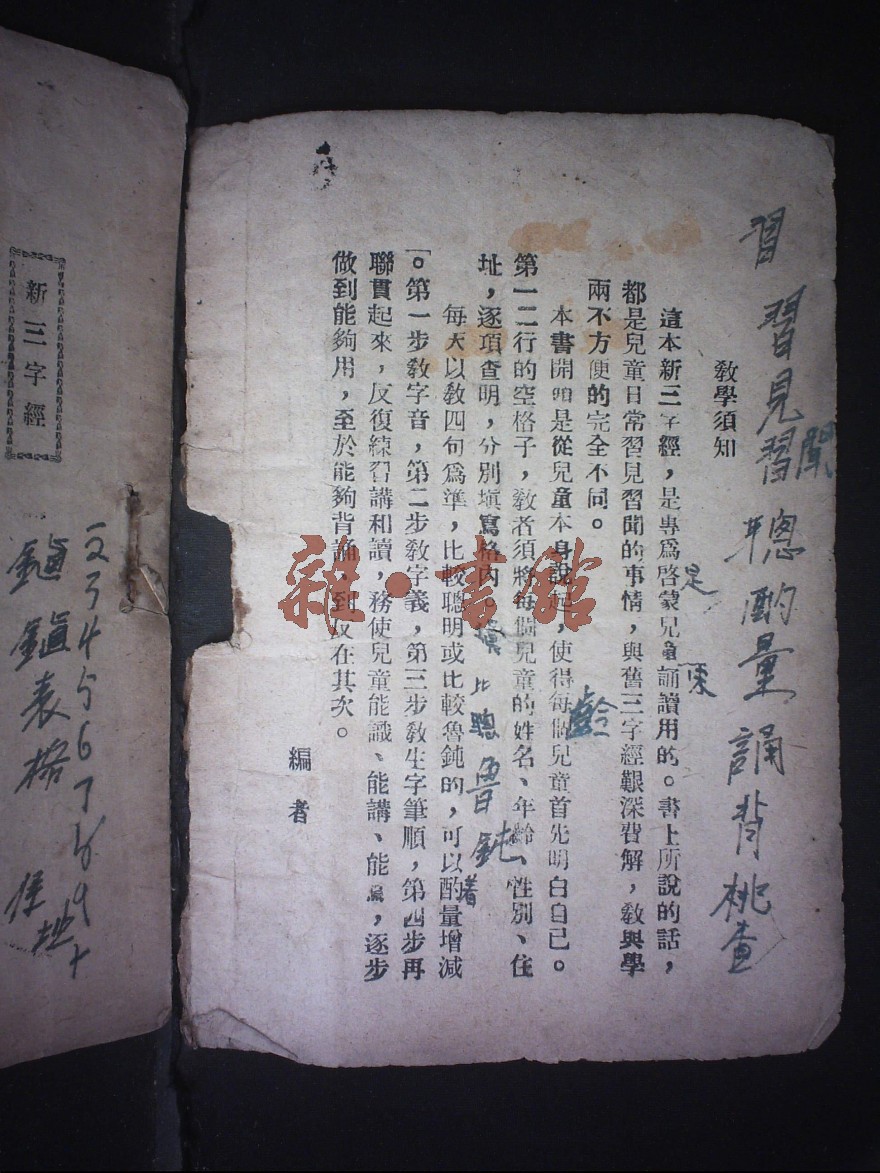 習 習見習聞 聰酌量誦背桃查
教學須知
這本新三字經，是專爲啓蒙兒童誦讀用的。書上所說的話，
都是兒童日常習見習聞的事情，與舊三字經艱深費解，敎與學
兩不方便的完全不同。
是
本書開頭是從兒童本身說起，使得每個兒童首先明白自己。
第一二行的空格子，敎者須將每個兒童的姓名、年齡、性別、住
址，逐項查明，分別塡寫格內。
齡
比聰魯鈍
著
每天以敎四句爲準，比較聰明或比較魯鈍的，可以酌量增減
。第一步敎字音，第二步敎字義，第三步敎生字筆順，第四步再
聯貫起來，反復練習講和讀，務使兒童能識、能講、能寫，逐步
做到能夠用，至於能夠背誦，到反在其次。
編者
雜·書館
新三字經
2 3 4 5 6 7 8 9 +
鎭鎭表格 住址